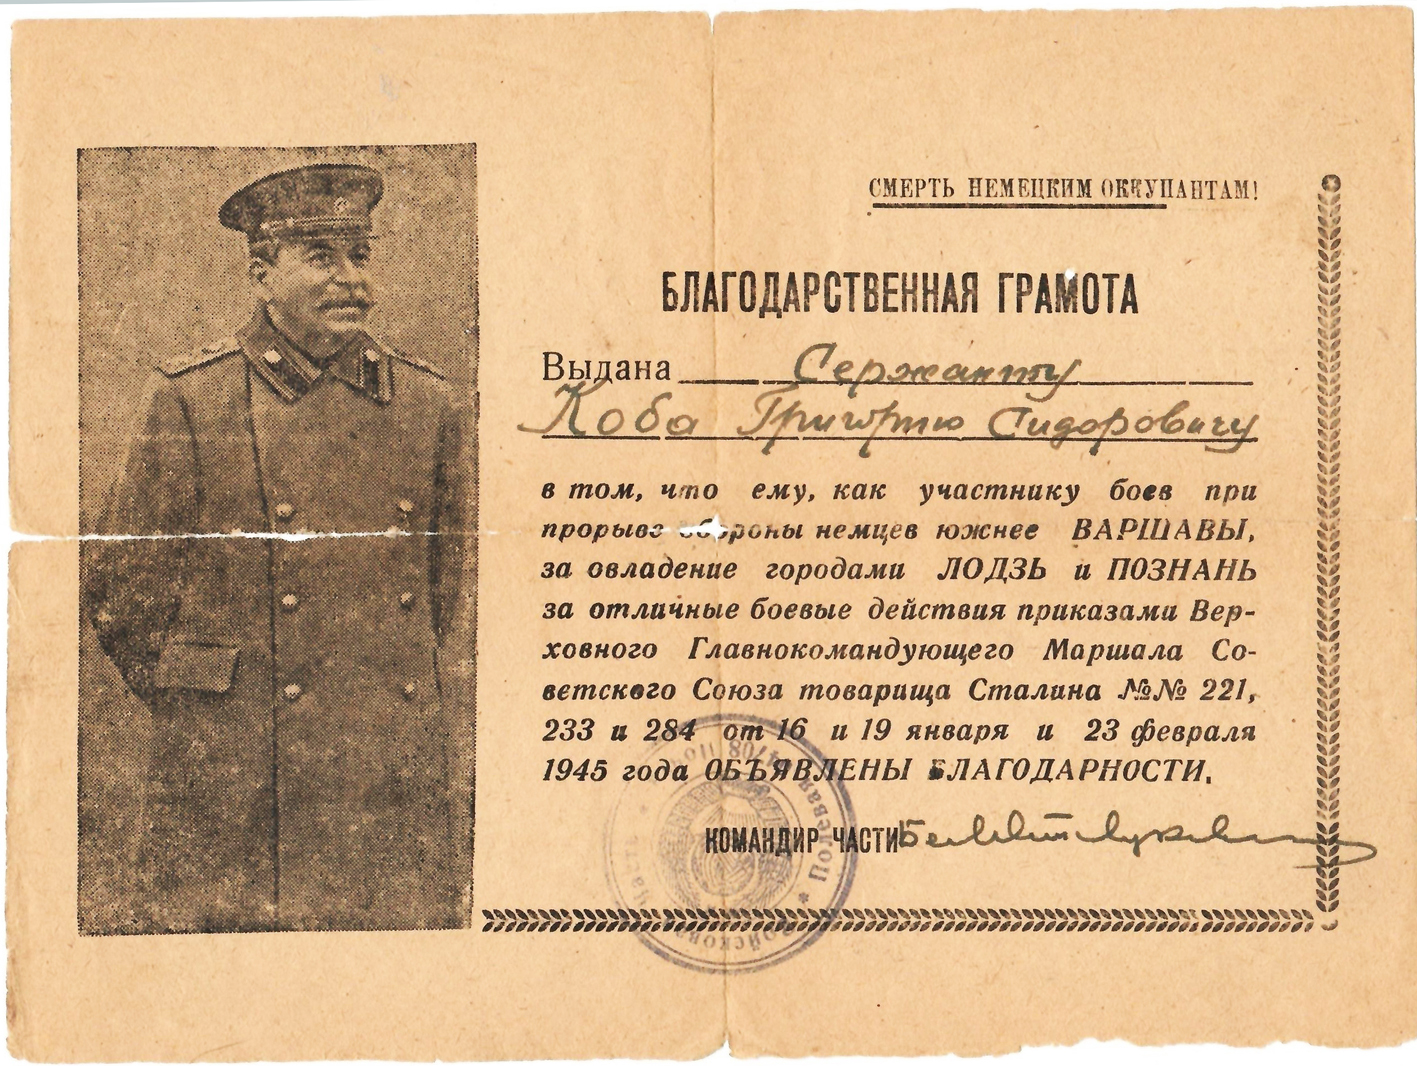 СМЕРТЬ НЕМЕЦКИМ ОККУПАНТАМ!
БЛАГОДАРСТВЕННАЯ ГРАМОТА
Выдана Сержанту
Коба Григорию Сидоровичу
в том, что ему, как участнику боев при
прорыве обороны немцев южнее ВАРШАВЫ,
за овладение городами ЛОДЗЬ и ПОЗНАНЬ
за отличные боевые действия приказами Вер-
ховного Главнокомандующего Маршала Со-
ветского Союза товарища Сталина №№ 221,
233 и 284 от 16 и 19 января и 23 февраля
1945 года ОБЪЯВЛЕНЫ БЛАГОДАРНОСТИ.
КОМАНДИР ЧАСТИ
Полевая